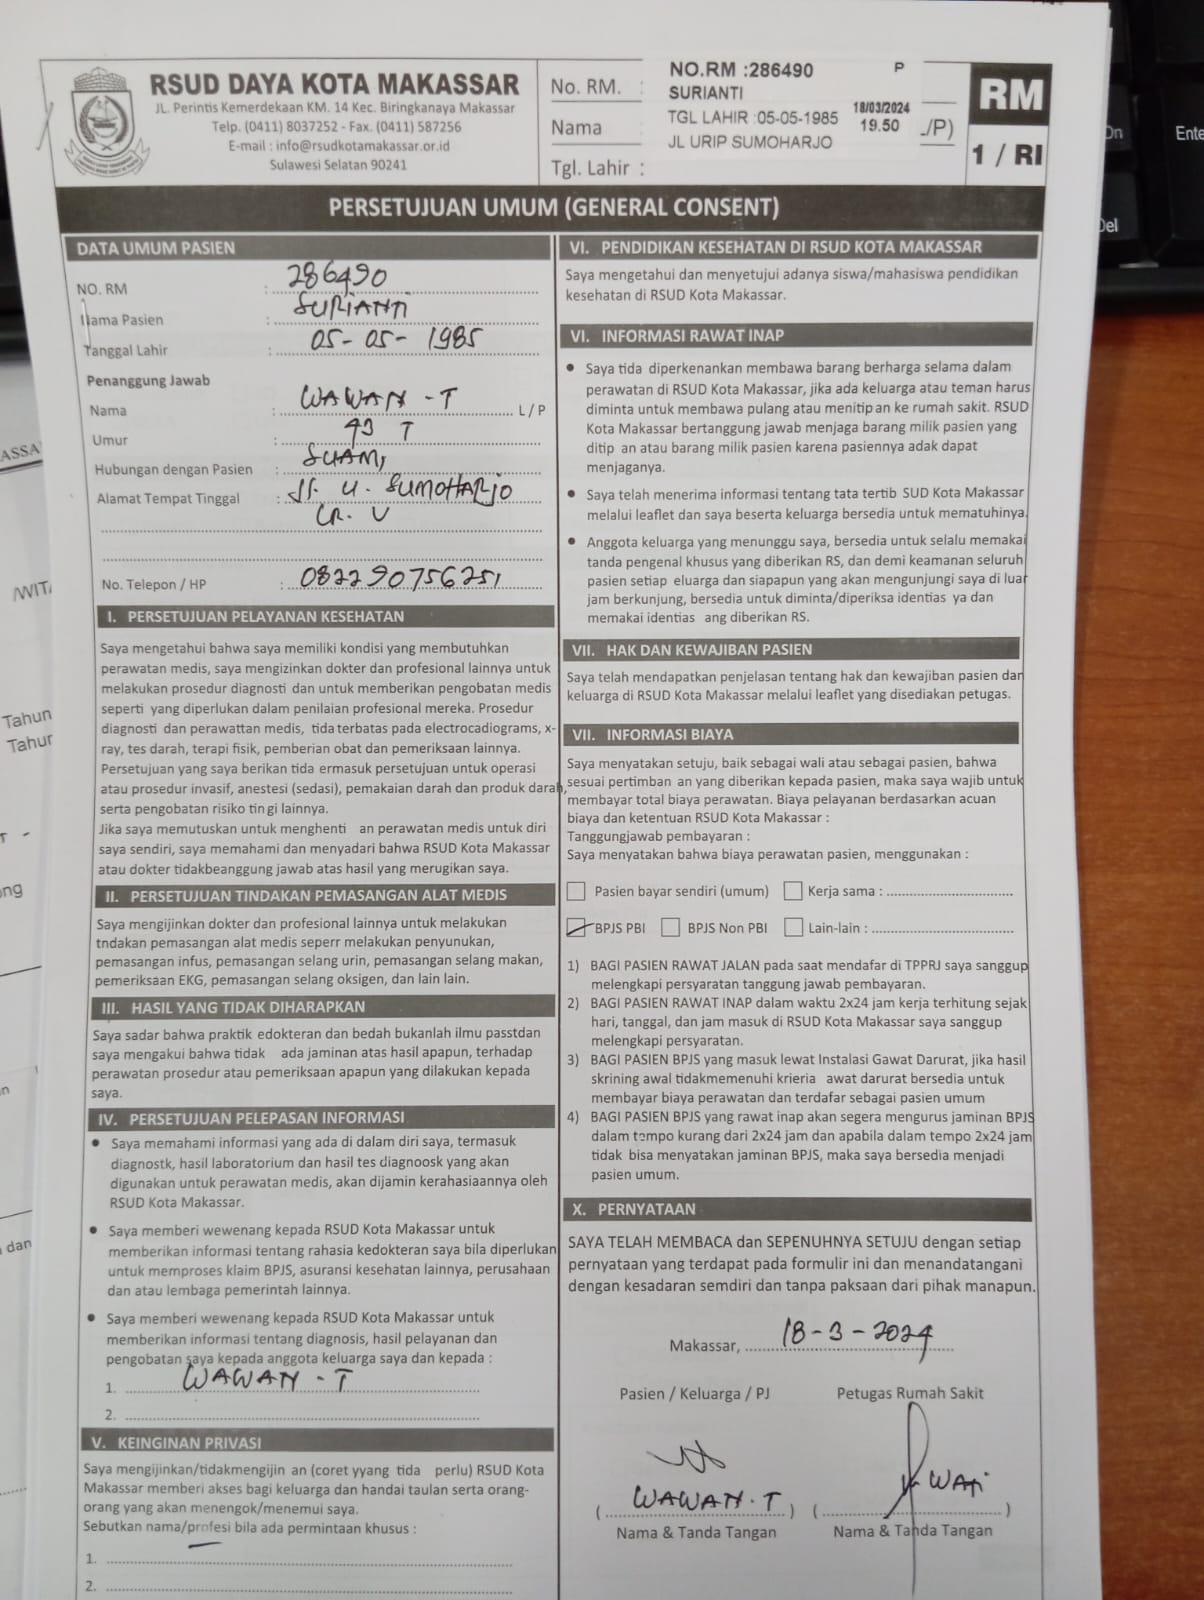 RSUD DAYA KOTA MAKASSAR
JL. Perintis Kemerdekaan KM. 14 Kec. Biringkanaya Makassar
Telp. (0411) 8037252 - Fax. (0411) 587256
E-mail : info@rsudkotamakassar.or.id
Sulawesi Selatan 90241
No. RM. :
Nama
Tgl. Lahir :
NO.RM :286490 P
SURIANTI
TGL LAHIR :05-05-1985 18/03/2024
JL URIP SUMOHARJO 19.50
/P)
RM
1 / RI
PERSETUJUAN UMUM (GENERAL CONSENT)
DATA UMUM PASIEN
NO. RM : 286490
Nama Pasien : SURIANTI
Tanggal Lahir : 05-05-1985
Penanggung Jawab
Nama : WAWAN -T L / P
Umur : 43 T
Hubungan dengan Pasien : SUAMI
Alamat Tempat Tinggal : Jl. U. SUMOHARJO
LR. V
No. Telepon / HP : 082290756251
I. PERSETUJUAN PELAYANAN KESEHATAN
Saya mengetahui bahwa saya memiliki kondisi yang membutuhkan
perawatan medis, saya mengizinkan dokter dan profesional lainnya untuk
melakukan prosedur diagnosti dan untuk memberikan pengobatan medis
seperti yang diperlukan dalam penilaian profesional mereka. Prosedur
diagnosti dan perawattan medis, tida terbatas pada electrocadiograms, x-
ray, tes darah, terapi fisik, pemberian obat dan pemeriksaan lainnya.
Persetujuan yang saya berikan tida ermasuk persetujuan untuk operasi
atau prosedur invasif, anestesi (sedasi), pemakaian darah dan produk darah,
serta pengobatan risiko tin gi lainnya.
Jika saya memutuskan untuk menghenti an perawatan medis untuk diri
saya sendiri, saya memahami dan menyadari bahwa RSUD Kota Makassar
atau dokter tidakbeanggung jawab atas hasil yang merugikan saya.
II. PERSETUJUAN TINDAKAN PEMASANGAN ALAT MEDIS
Saya mengijinkan dokter dan profesional lainnya untuk melakukan
tndakan pemasangan alat medis seperr melakukan penyunukan,
pemasangan infus, pemasangan selang urin, pemasangan selang makan,
pemeriksaan EKG, pemasangan selang oksigen, dan lain lain.
III. HASIL YANG TIDAK DIHARAPKAN
Saya sadar bahwa praktik edokteran dan bedah bukanlah ilmu passtdan
saya mengakui bahwa tidak ada jaminan atas hasil apapun, terhadap
perawatan prosedur atau pemeriksaan apapun yang dilakukan kepada
saya.
IV. PERSETUJUAN PELEPASAN INFORMASI
• Saya memahami informasi yang ada di dalam diri saya, termasuk
diagnostk, hasil laboratorium dan hasil tes diagnoosk yang akan
digunakan untuk perawatan medis, akan dijamin kerahasiaannya oleh
RSUD Kota Makassar.
• Saya memberi wewenang kepada RSUD Kota Makassar untuk
memberikan informasi tentang rahasia kedokteran saya bila diperlukan
untuk memproses klaim BPJS, asuransi kesehatan lainnya, perusahaan
dan atau lembaga pemerintah lainnya.
• Saya memberi wewenang kepada RSUD Kota Makassar untuk
memberikan informasi tentang diagnosis, hasil pelayanan dan
pengobatan saya kepada anggota keluarga saya dan kepada :
1. WAWAN - T
2.
V. KEINGINAN PRIVASI
Saya mengijinkan/tidakmengijin an (coret yyang tida perlu) RSUD Kota
Makassar memberi akses bagi keluarga dan handai taulan serta orang-
orang yang akan menengok/menemui saya.
Sebutkan nama/profesi bila ada permintaan khusus :
1.
2.
VI. PENDIDIKAN KESEHATAN DI RSUD KOTA MAKASSAR
Saya mengetahui dan menyetujui adanya siswa/mahasiswa pendidikan
kesehatan di RSUD Kota Makassar.
VI. INFORMASI RAWAT INAP
• Saya tida diperkenankan membawa barang berharga selama dalam
perawatan di RSUD Kota Makassar, jika ada keluarga atau teman harus
diminta untuk membawa pulang atau menitip an ke rumah sakit. RSUD
Kota Makassar bertanggung jawab menjaga barang milik pasien yang
ditip an atau barang milik pasien karena pasiennya adak dapat
menjaganya.
• Saya telah menerima informasi tentang tata tertib SUD Kota Makassar
melalui leaflet dan saya beserta keluarga bersedia untuk mematuhinya.
• Anggota keluarga yang menunggu saya, bersedia untuk selalu memakai
tanda pengenal khusus yang diberikan RS, dan demi keamanan seluruh
pasien setiap eluarga dan siapapun yang akan mengunjungi saya di luar
jam berkunjung, bersedia untuk diminta/diperiksa identias ya dan
memakai identias ang diberikan RS.
VII. HAK DAN KEWAJIBAN PASIEN
Saya telah mendapatkan penjelasan tentang hak dan kewajiban pasien dan
keluarga di RSUD Kota Makassar melalui leaflet yang disediakan petugas.
VII. INFORMASI BIAYA
Saya menyatakan setuju, baik sebagai wali atau sebagai pasien, bahwa
sesuai pertimban an yang diberikan kepada pasien, maka saya wajib untuk
membayar total biaya perawatan. Biaya pelayanan berdasarkan acuan
biaya dan ketentuan RSUD Kota Makassar :
Tanggungjawab pembayaran :
Saya menyatakan bahwa biaya perawatan pasien, menggunakan :
Pasien bayar sendiri (umum) Kerja sama :
BPJS PBI BPJS Non PBI Lain-lain :
1) BAGI PASIEN RAWAT JALAN pada saat mendafar di TPPRJ saya sanggup
melengkapi persyaratan tanggung jawab pembayaran.
2) BAGI PASIEN RAWAT INAP dalam waktu 2x24 jam kerja terhitung sejak
hari, tanggal, dan jam masuk di RSUD Kota Makassar saya sanggup
melengkapi persyaratan.
3) BAGI PASIEN BPJS yang masuk lewat Instalasi Gawat Darurat, jika hasil
skrining awal tidakmemenuhi krieria awat darurat bersedia untuk
membayar biaya perawatan dan terdafar sebagai pasien umum
4) BAGI PASIEN BPJS yang rawat inap akan segera mengurus jaminan BPJS
dalam tempo kurang dari 2x24 jam dan apabila dalam tempo 2x24 jam
tidak bisa menyatakan jaminan BPJS, maka saya bersedia menjadi
pasien umum.
X. PERNYATAAN
SAYA TELAH MEMBACA dan SEPENUHNYA SETUJU dengan setiap
pernyataan yang terdapat pada formulir ini dan menandatangani
dengan kesadaran semdiri dan tanpa paksaan dari pihak manapun.
Makassar, 18-3-2024
Pasien / Keluarga / PJ Petugas Rumah Sakit
( WAWAN.T ) ( WATI )
Nama & Tanda Tangan Nama & Tanda Tangan
Tahun
dan
Del
Ente